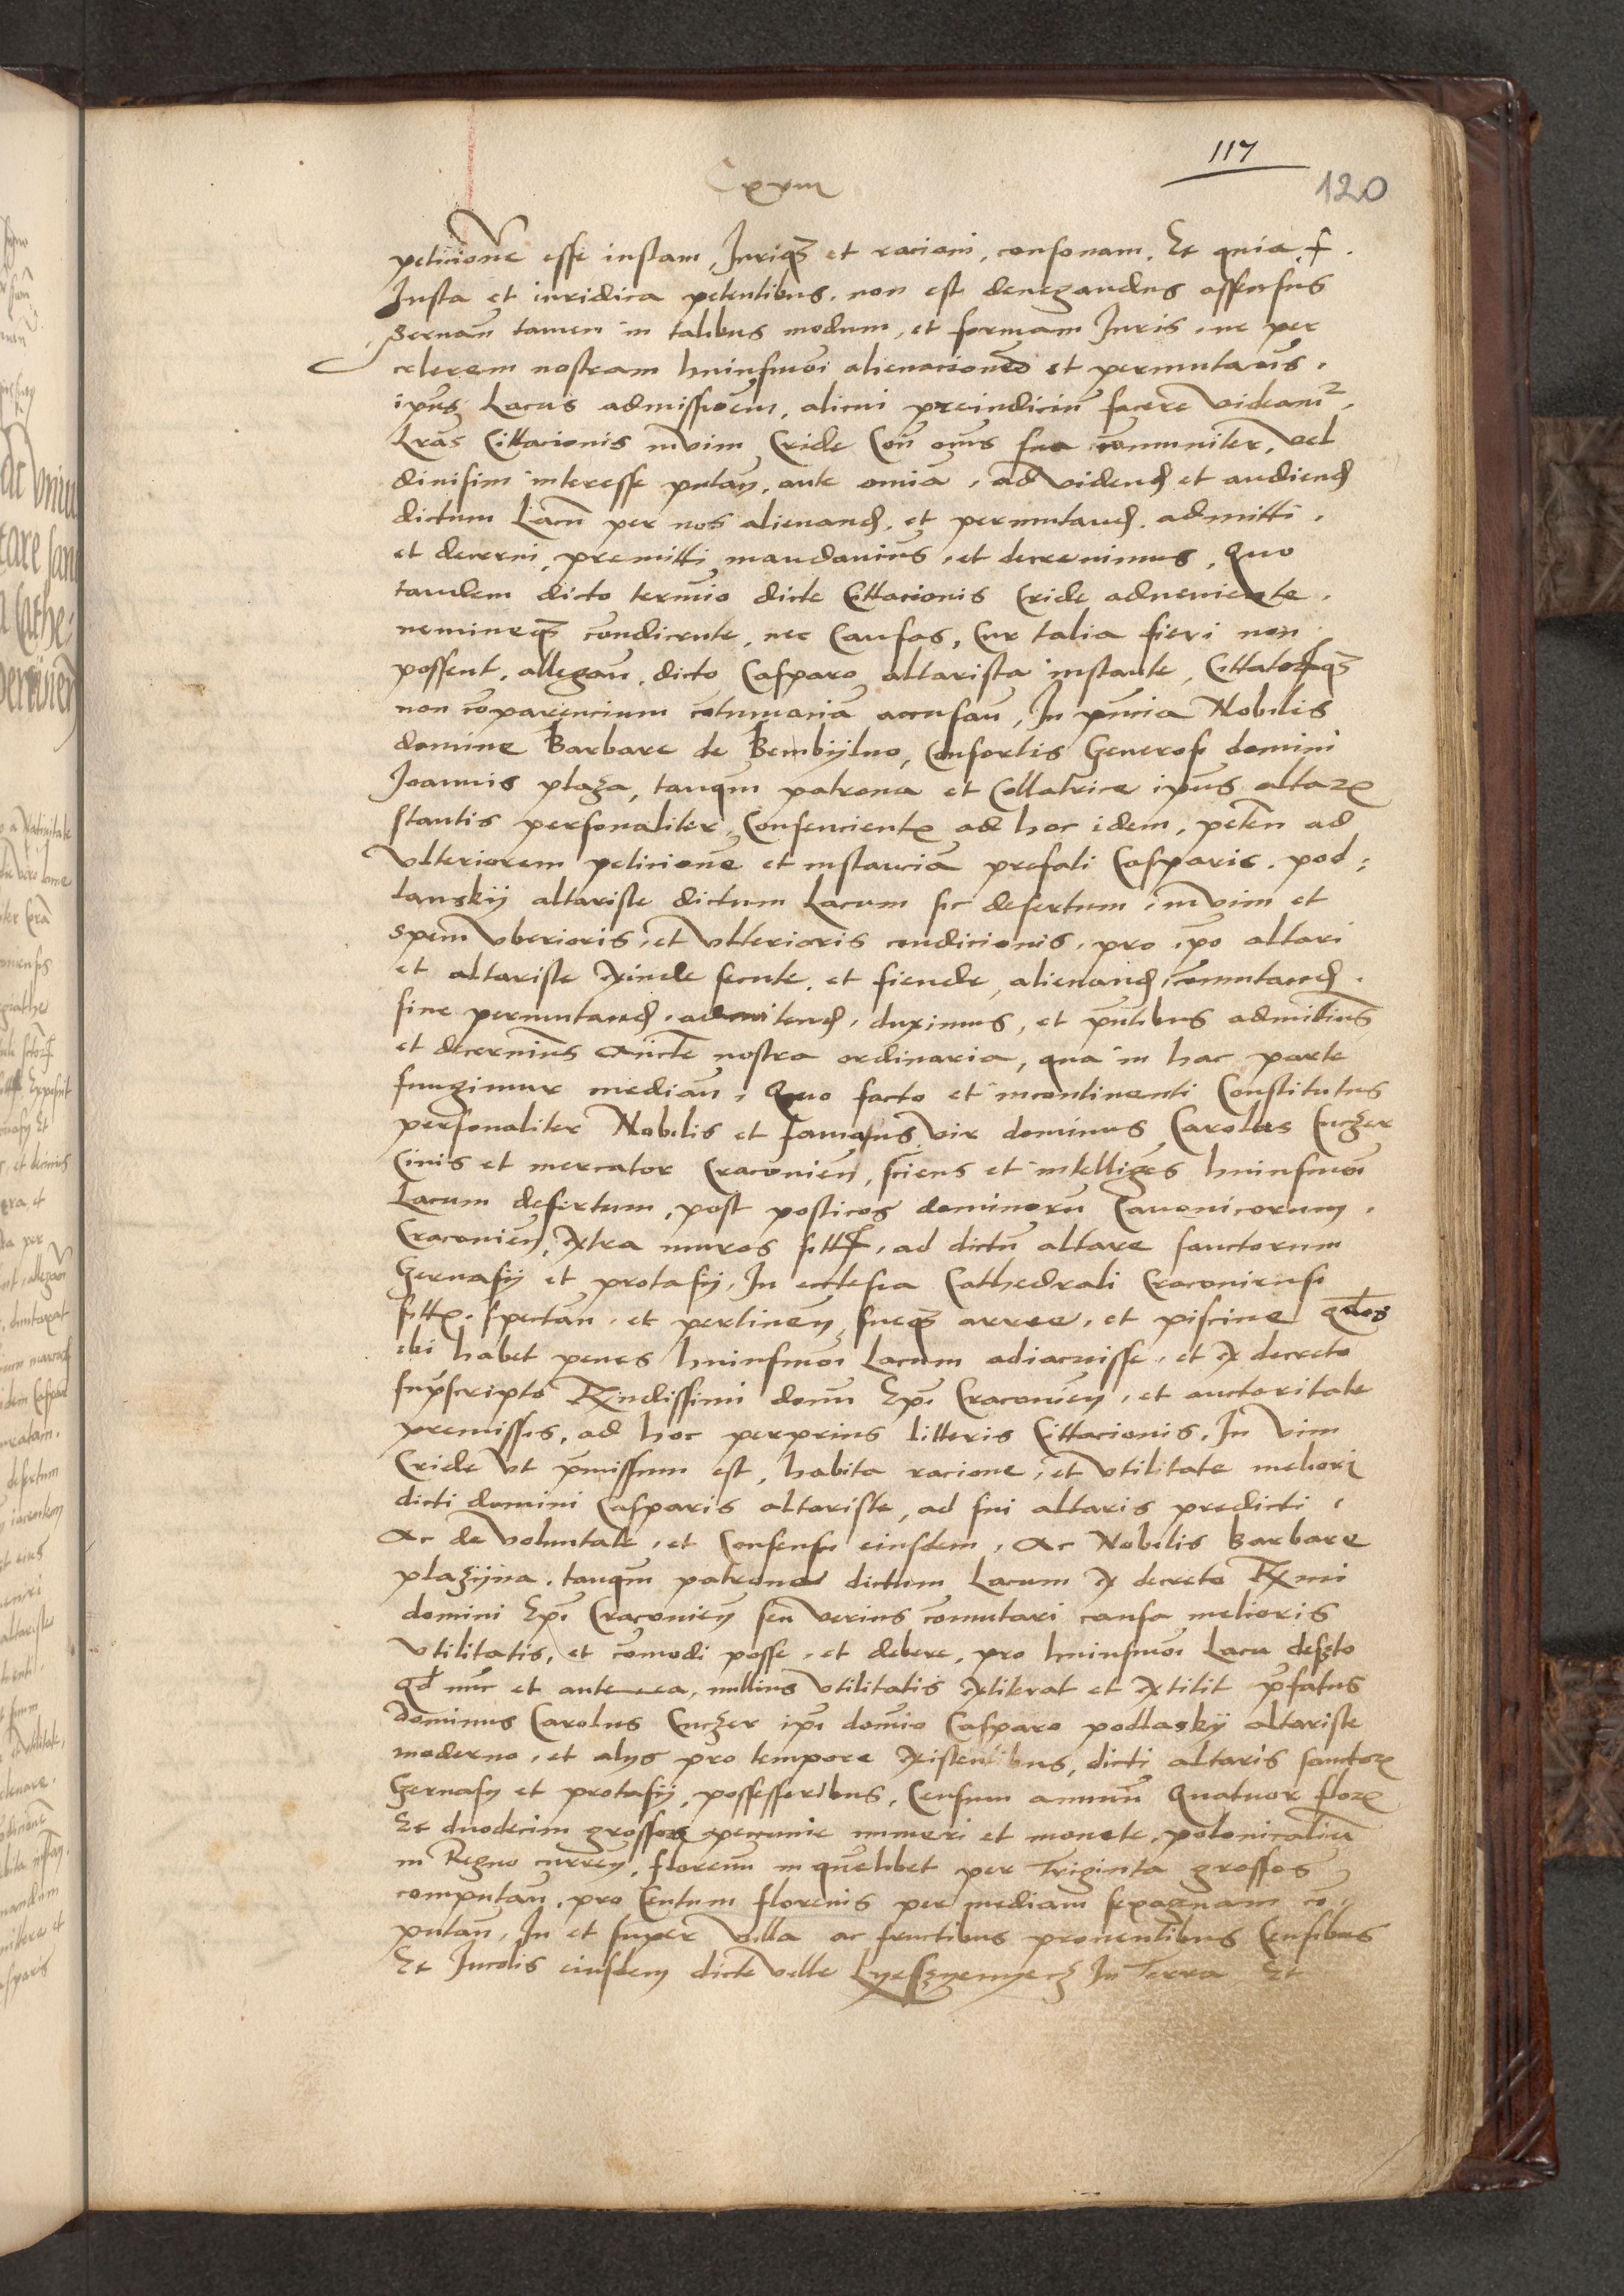 117
120
Cxviii
peticione esse iustam, Juriq3 et racioni, consonam. Et quia
Justa et iuridica petentibus. non est denegandus assensus
Servan tamen in talibus modum, et formam Juris. ne per
celerem nostram huiusmoi alienacionem et permutacois.
ipius Lacus admissioem, alicui preiudiciu facere videam2.
Lras Cittacionis in vim Cride Con omes sua comuniter, vel
diuisim interesse putan. ante omia. ad videnđ et audienđ
dictum Lacu per nos alienanđ. et permutanđ. admitti.
et decerni, premitti mandauims. et decreuimus. Quo
tandem dicto termio dicte Cittacionis Cride adueniente.
nemineq3 condicente, nec Causas, Cur talia fieri non
possent, allegan, dicto Casparo altarista instante, Cittatorq3
non comparencium cotumacia accusan, In pncia Nobilis
domine Barbare de Bembijlno, Consortis Generosi domini
Joannis plaza, tanqm patrona et Collatrice ipius altar
stantis personaliter. Consencient ad hoc idem. peten ad
Vlteriorem peticione et instancia prefati Casparis. pod:
lanskij altariste dictum Lacum sic desertum. in vim et
spem vberioris. et vlterioris condicionis. pro ipo altari
et altariste exinde secute. et fiende, alienanđ, comutanđ.
siue permutanđ. admittenđ. duximus, et pntibus admittims
et decernims aucte nostra ordinaria, qua in hac parte
fungimur median. Quo facto et incontinenti Constitutus
personaliter Nobilis et famatus vir dominus Carolus Euczer
Ciuis et mercator Cracouien, sciens et intelliges huiusmoi
Lacum desertum, post posticos dominoru Canonicorum.
Cracouien, extra muros sitt, ad dictu altare sanctorum
Geruasij et protasij. In ecclesia Cathedrali Cracouiensi
sitt. spectan. et pertinen, sueq3 arree. et piscine
ibi habet penes huiusmoi Lacum adiacuisse. et ex decreto
supscripto Rxndissimi domi Epi Cracouien. et auctoritate
premissis, ad hoc perprius litteris Cittacionis. In vim
Cride vt pmissum est, habita racione. et vtilitate melior
dicti domini Casparis altariste, ad sui altaris predicti.
Ac de voluntate. et Consensu eiusdem. Ac Nobilis Barbare
plazijna. tanqm patrone dictum Lacum ex decreto Rxmi
domini Epi Cracouien seu verius comutari causa melioris
vtilitatis, et comodi posse. et debere, pro huiusmoi Lacu desto
qđ nuc et antea, nullius vtilitatis extiterat et extitit pfatus
Dominus Carolus Euczer ipi domio Casparo podlaskij altariste
moderno. et alijs pro tempore existentibus, dicti altaris sanctor
Geruasij et protasij, possessoribus, Censum annuu Quatuor flor
Et duodecim grossor peccunie numeri et monete, polonicaliu
in Regno curren, florenu in quelibet per Triginta grossos
computan. pro Centum florenis per mediam sexagenam co-
putan, In et super villa ac fructibus prouentibus Censibus
Et Incolis eiusdem dicte ville In Terra Et